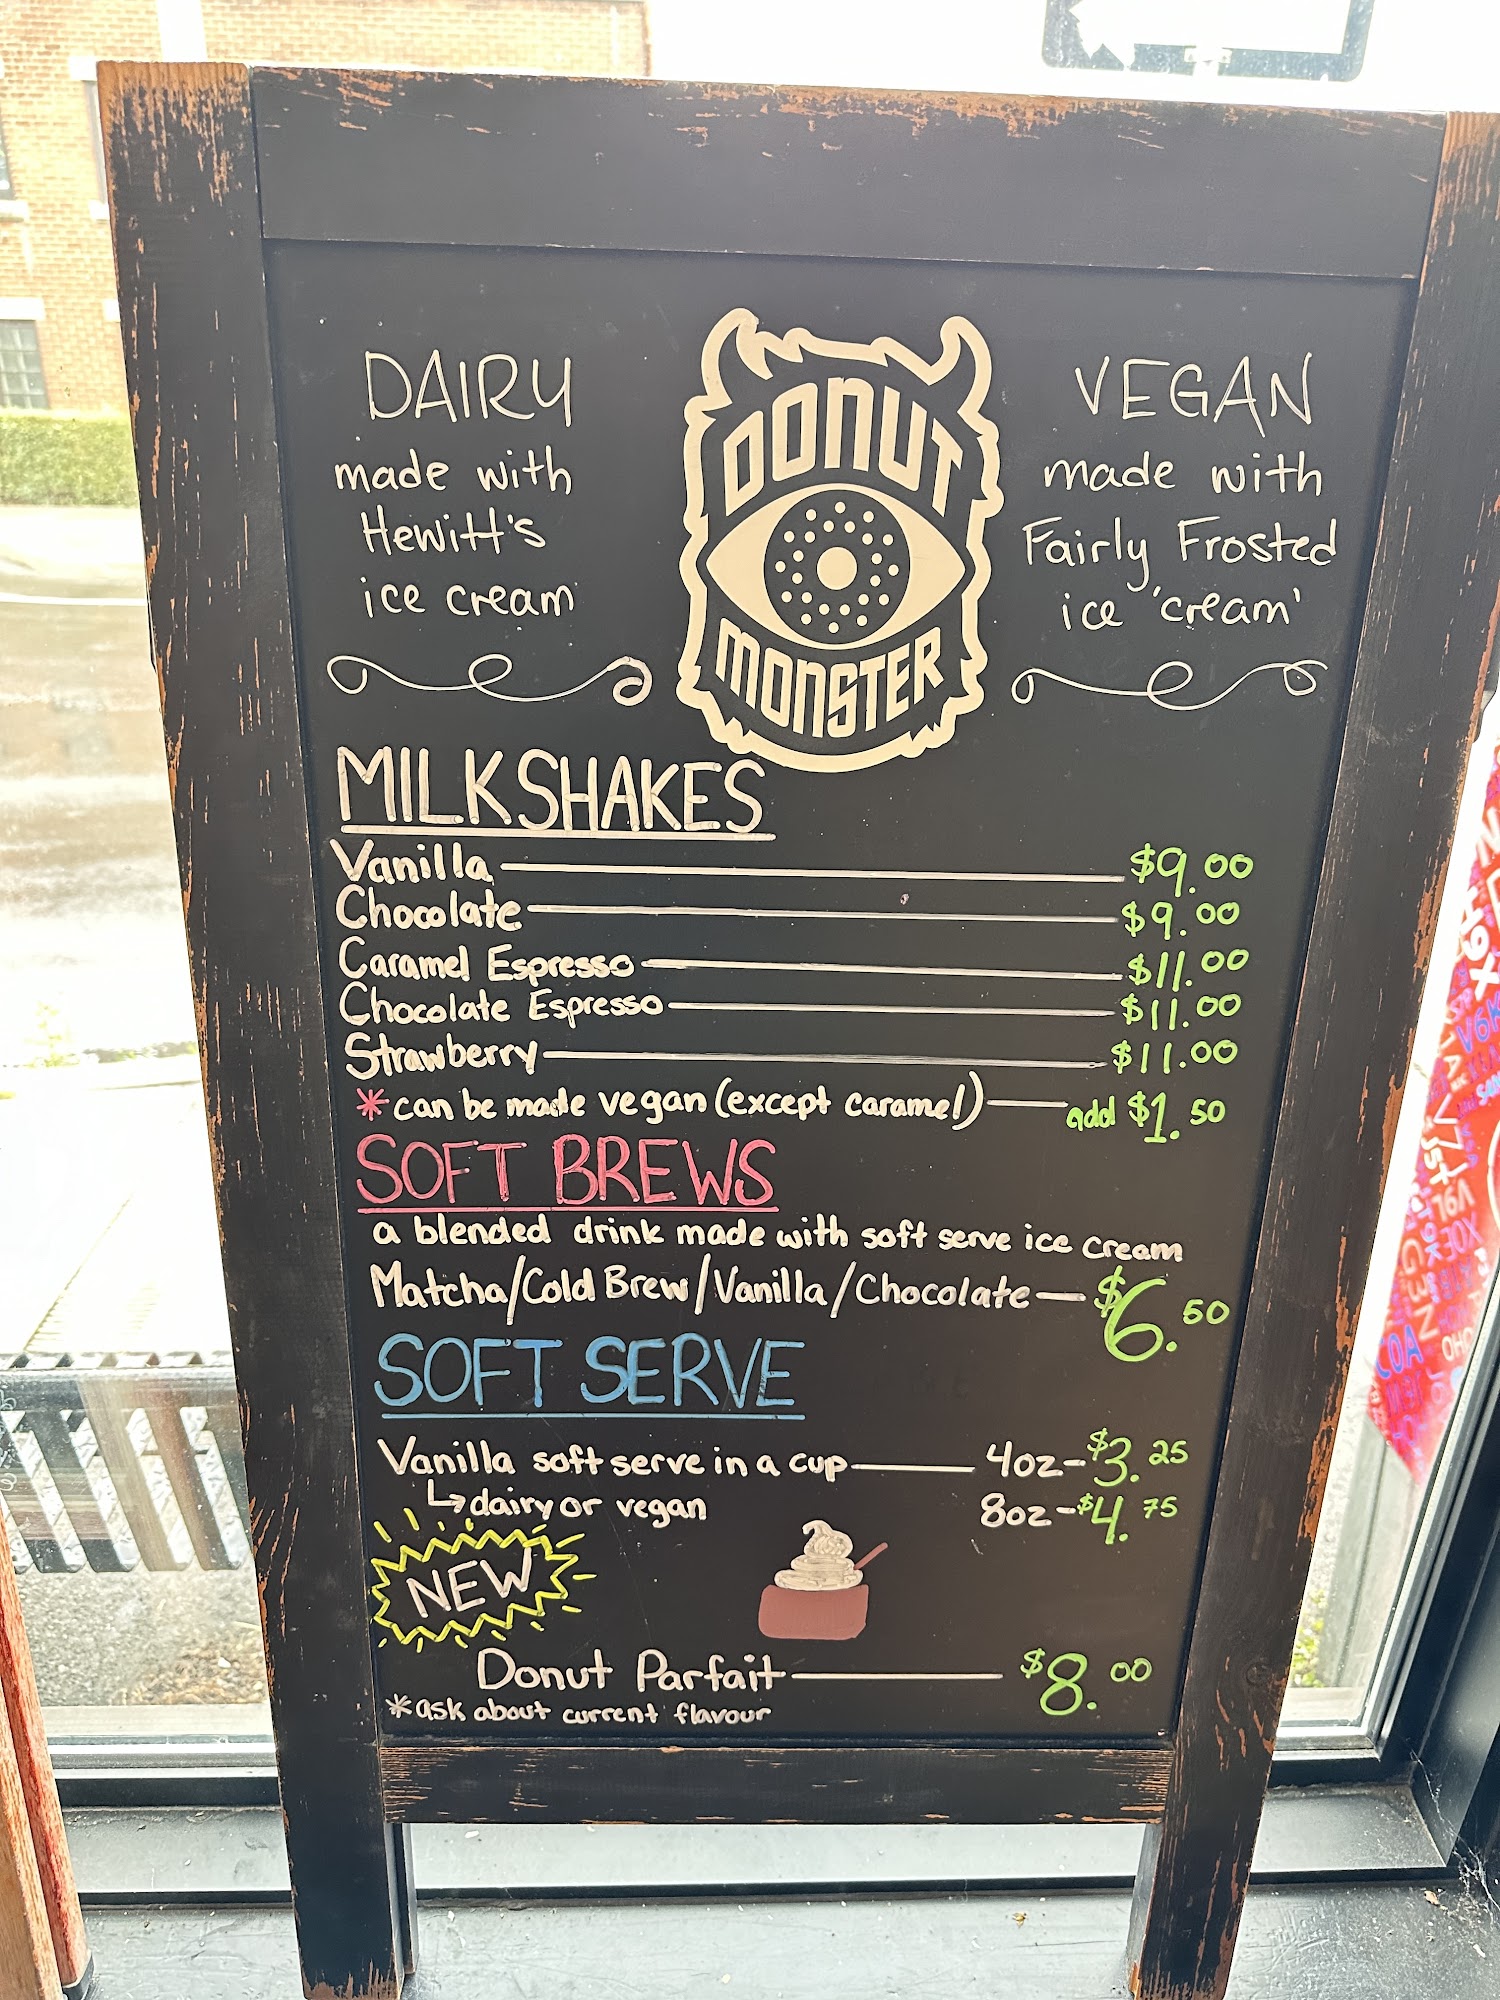 DAIRY
made with
Hewitt's
ice cream
DONUT
MONSTER
VEGAN
made with
Fairly Frosted
ice 'cream'
MILKSHAKES
Vanilla $9.00
Chocolate $9.00
Caramel Espresso $11.00
Chocolate Espresso $11.00
Strawberry $11.00
*can be made vegan (except caramel) add $1.50
SOFT BREWS
a blended drink made with soft serve ice cream
Matcha/Cold Brew/Vanilla/Chocolate $6.50
SOFT SERVE
Vanilla soft serve in a cup 4oz-$3.25
↳dairy or vegan 8oz-$4.75
NEW
Donut Parfait $8.00
*ask about current flavour